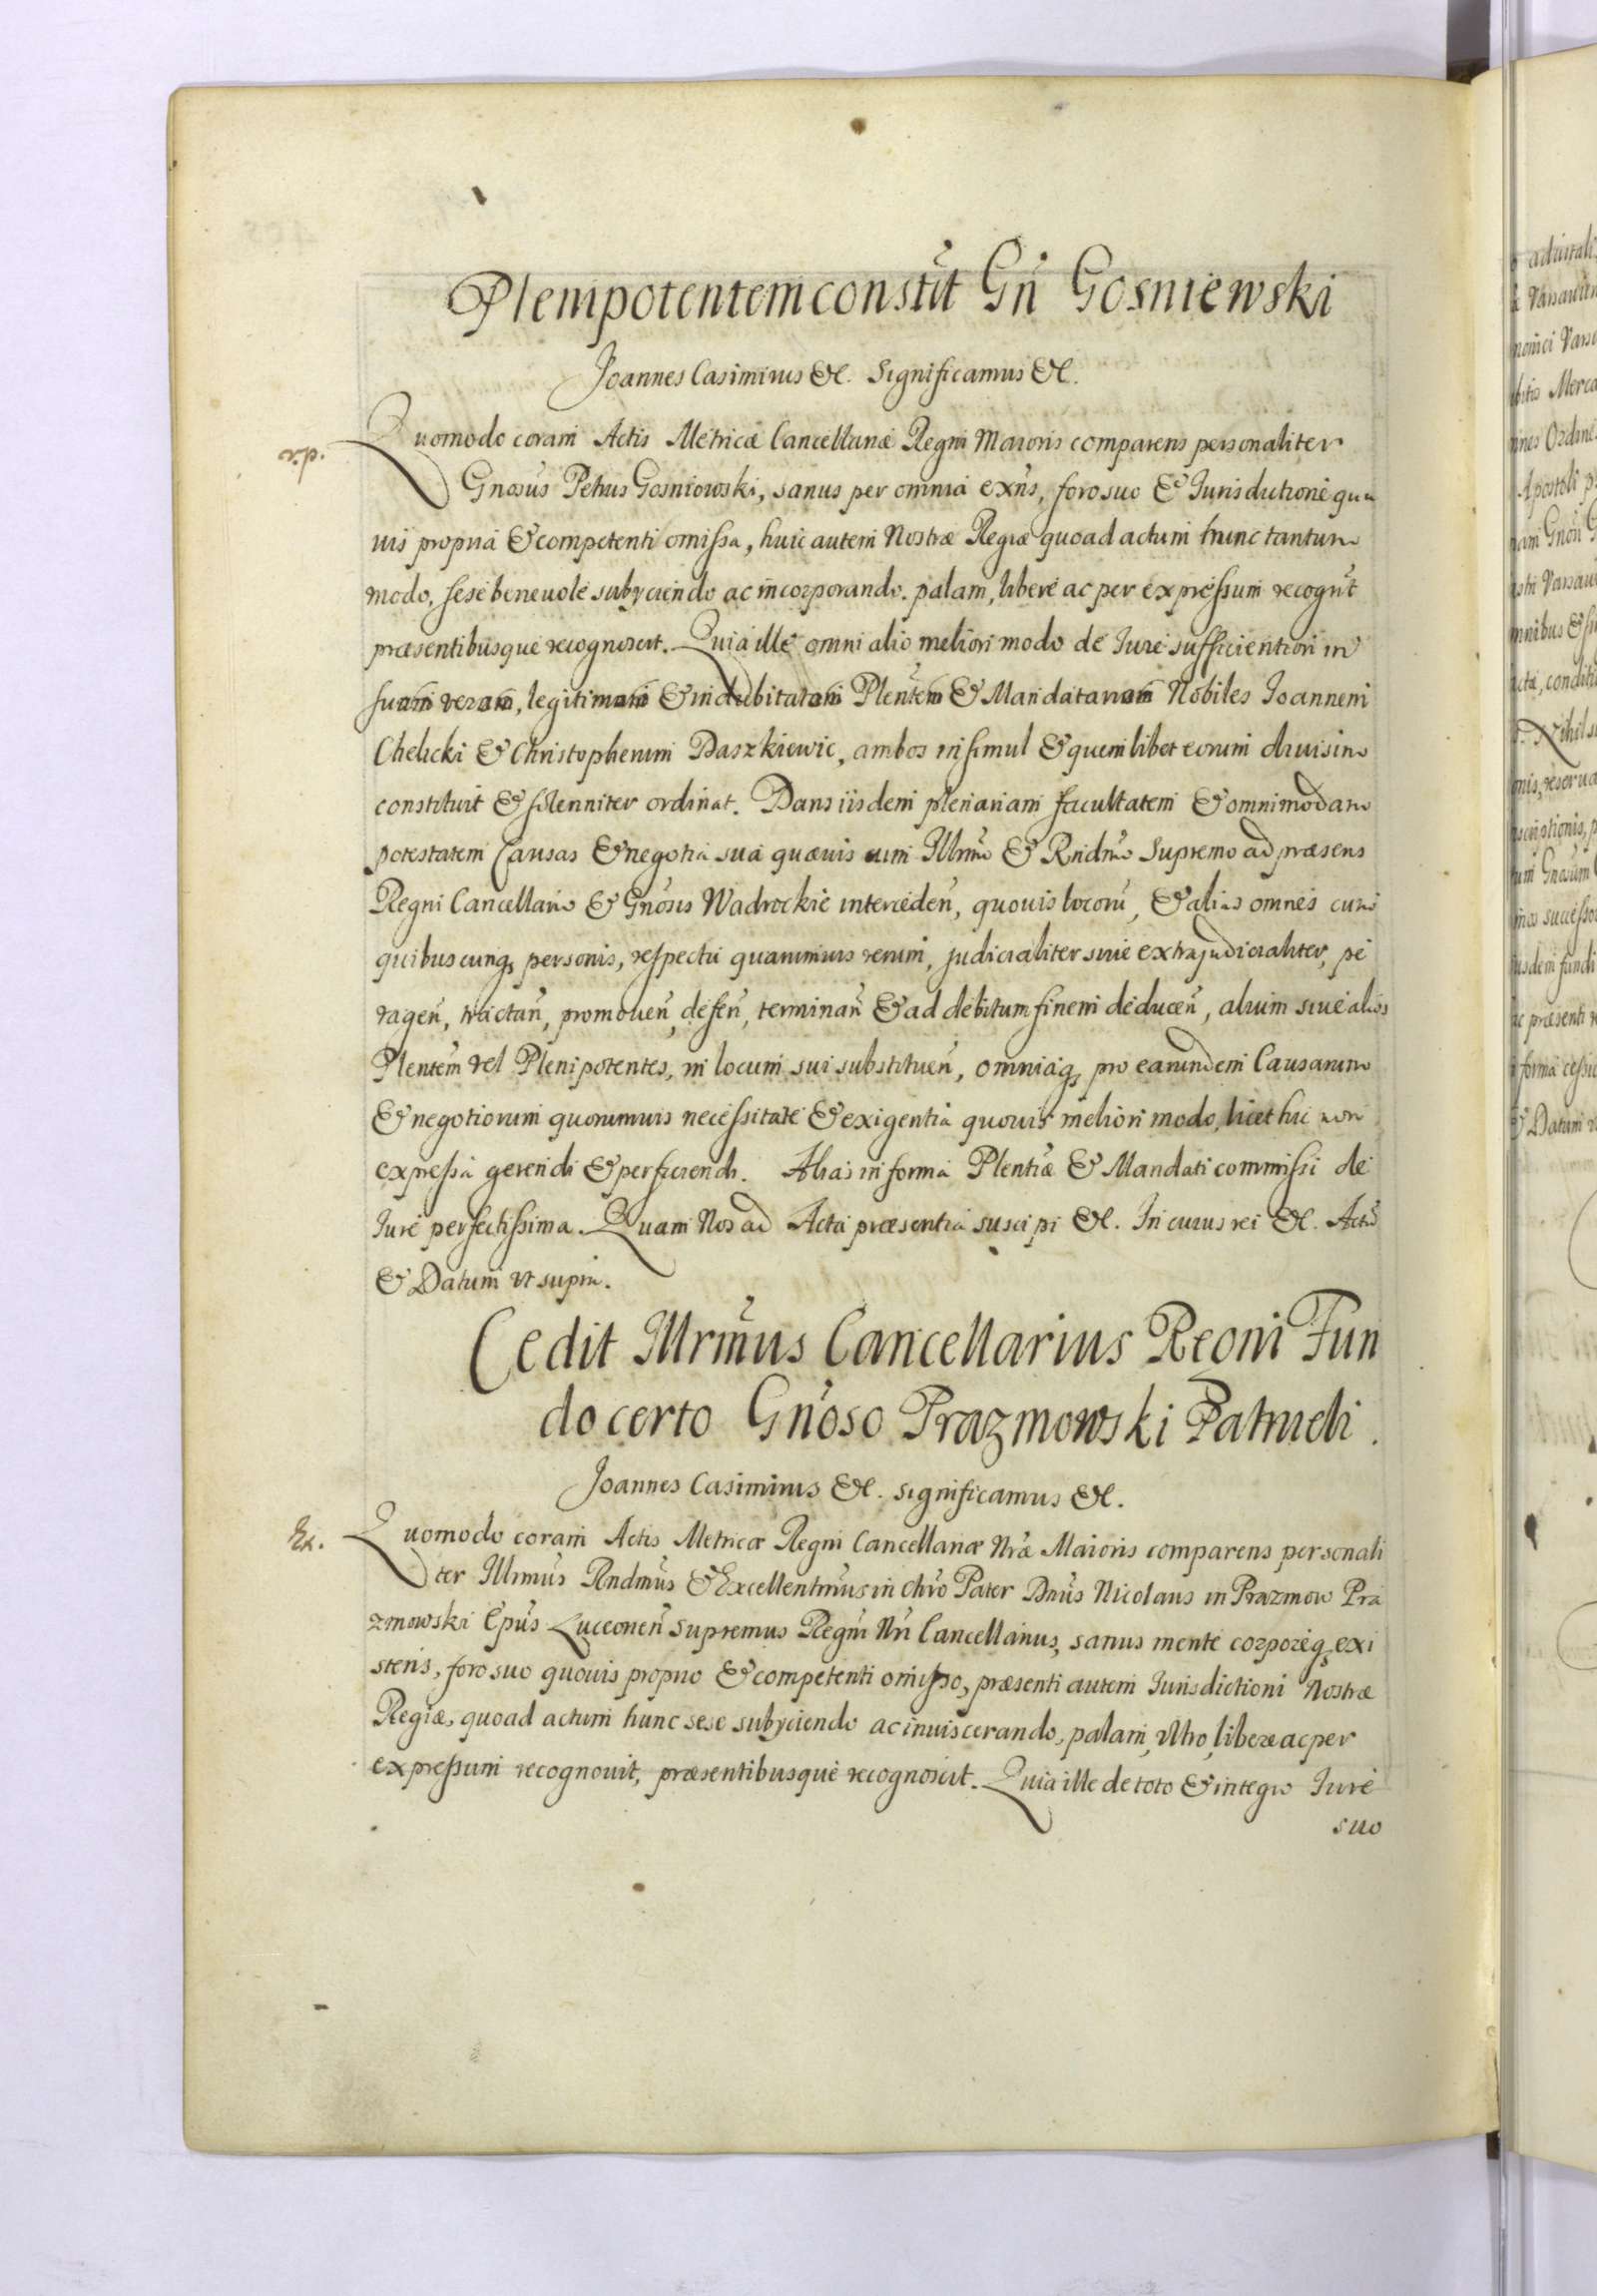 Plenipotentem constũt Gñ Gosniewski
Joannes Casimirus &c. Significamus &c.
r.p.
Quomodo coram Actis Metricæ Cancellariæ Regni Maioris comparens personaliter
Gnosus Petrus Gosniowski, sanus per omnia exñs, foro suo & Jurisdictione qua
uis propria & competenti omissa, huic autem Nostræ Regiæ quoad actum hunc tantum
modo, sese beneuole subyciendo ac incorporando, palam, libere ac per expressum recognt
præsentibusque recognoscit. Quia ille omni alio meliori modo de Jure sufficientiori in
suam veram, legitimam & indubitatam Plentem & Mandatariam Nobiles Joannem
Chelicki & Christopherum Daszkiewic, ambos insimul & quemlibet eorum diuisim
constituit & solenniter ordinat. Dans iisdem plenariam facultatem & omnimodam
potestatem Causas & negotia sua quæuis cum Illrmo & Rndmo Supremo ad præsens
Regni Cancellario & Gnosis Wadrockie interceden̄, quouis locorũ, & alias omnes cum
quibuscunq, personis, respectu quarumuis rerum, judicialiter siue extrajudicialiter, pe
ragen̄, tractan̄, promouen̄, defen̄, terminan̄ & ad debitum finem deducen̄, alium siue alios
Plentem vel Plenipotentes, in locum sui substituen̄, omniaq, pro earundem Causarum
& negotiorum quorumuis necessitate & exigentia quouis meliori modo, licet hic non
expressa gerendi & perficiendi. Alias in forma Plentiæ & Mandati commissi de
Jure perfectissima. Quam Nos ad Acta præsentia suscipi &c. In cuius rei &c. Actũ
& Datum vt supra.
Cedit Illrmũs Cancellarius Regni Fun
do certo Gñoso Prazmowski Patrueli.
Joannes Casimirus &c. significamus &c.
Ex.
Quomodo coram Actis Metricæ Regni Cancellariæ Nræ Maioris comparens personali
ter Illrmũs Rndmũs & Excellentmũs in Chro Pater Dnũs Nicolaus in Prazmow Pra
zmowski Epũs Luceoren̄ Supremus Regni Nri Cancellarius, sanus mente corporeq, exi
stens, foro suo quouis proprio & competenti omisso, præsenti autem Jurisdictioni Nostræ
Regiæ, quoad actum hunc sese subyciendo ac inuiscerando, palam, vltro, libere ac per
expressum recognouit, præsentibusque recognoscit. Quia ille de toto & integro Jure
suo